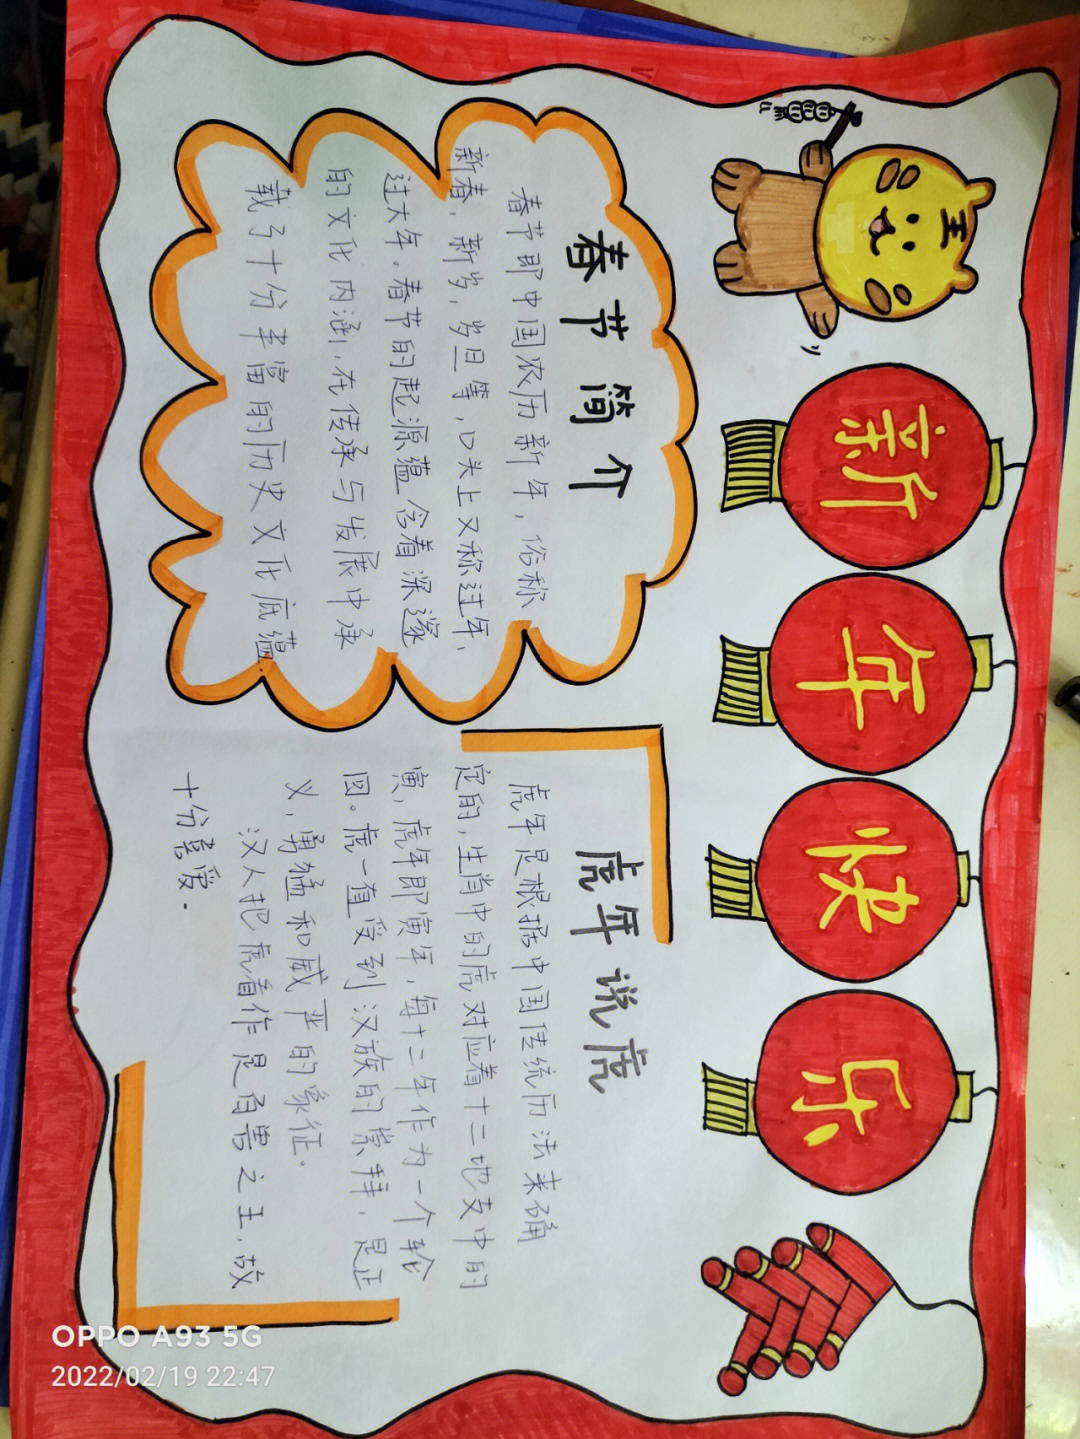 新年快乐
春节简介
春节即中国农历新年，俗称
新春，新岁，岁旦等，口头上又称过年、
过大年。春节的起源蕴含着深邃
的文化内涵，在传承与发展中承
载了十分丰富的历史文化底蕴。
虎年说虎
虎年是根据中国传统历法来确
定的，生肖中的虎对应着十二地支中的
寅，虎年即寅年，每十二年作为一个轮
回。虎一直受到汉族的崇拜，是正
义，勇猛和威严的象征。
汉人把虎看作是百兽之王，故
十分喜爱.
王
OPPO A93 5G
2022/02/19 22:47